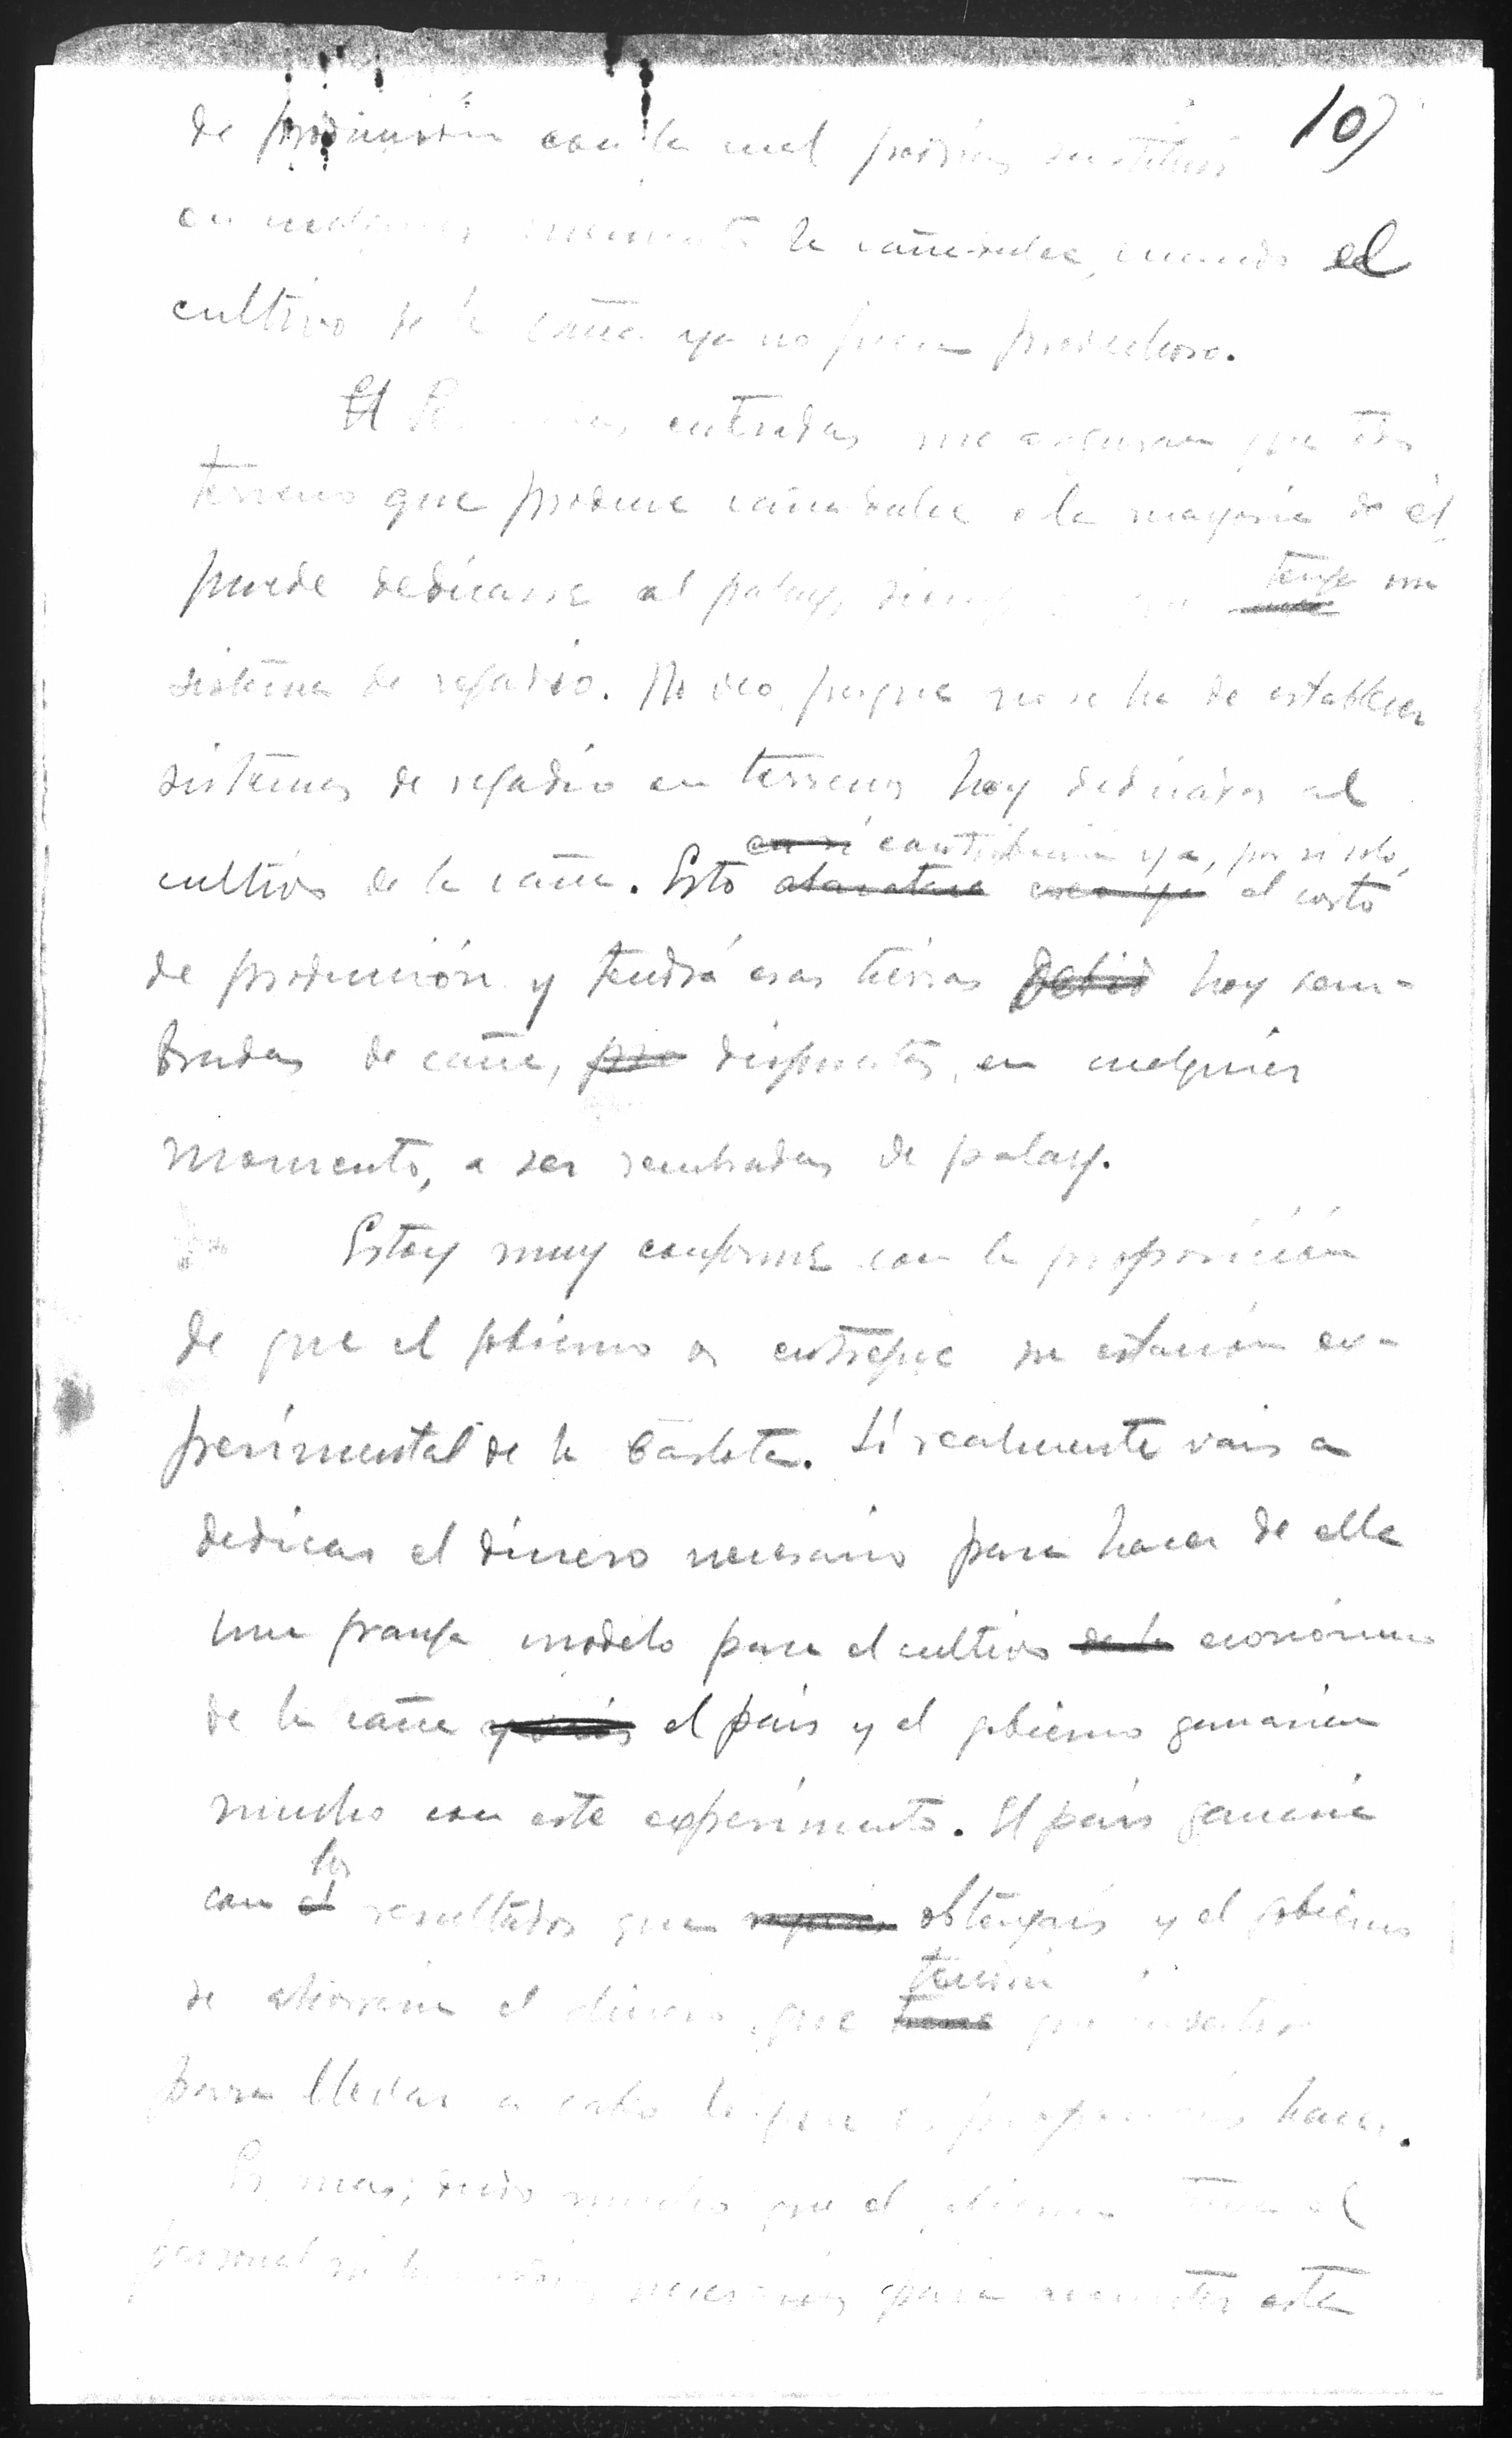 10)
de producción con la cual podrías sustituir
en cualquier momento la caña-dulce, cuando el
cultivo de la caña ya no fuera provechoso.
El entradas me aseguran que todo
terreno que produce caña dulce o la mayoría de él,
puede dedicarse al palay, siempre que tenga un
sistema de regadío. No veo porque no se ha de establecer
sistemas de regadío en terrenos hoy dedicados al
en sí contribuiría ya, por si solo,
cultivo de la caña. Esto al costo
de producción y tendrá esas tierras hoy sem-
bradas de caña, dispuestas, en cualquier
momento, a ser sembradas de palay.
Estoy muy conforme con la proposición
de que el gobierno os entregue su estación ex-
perimental de la Carlota. Si realmente vais a
dedicar el dinero necesario para hacer de ella
una granja modelo para el cultivo de la económico
de la caña el país y el gobierno ganarían
mucho con este experimento. El país ganaría
los
con el resultados que obtengais y el gobierno
tendría
se ahorraría el dinero, que tiene que invertir
para llevar a cabo lo que os proponeis hacer.
Es mas; dudo mucho que el gobierno tenga el
personal ni los necesarios para acometer este